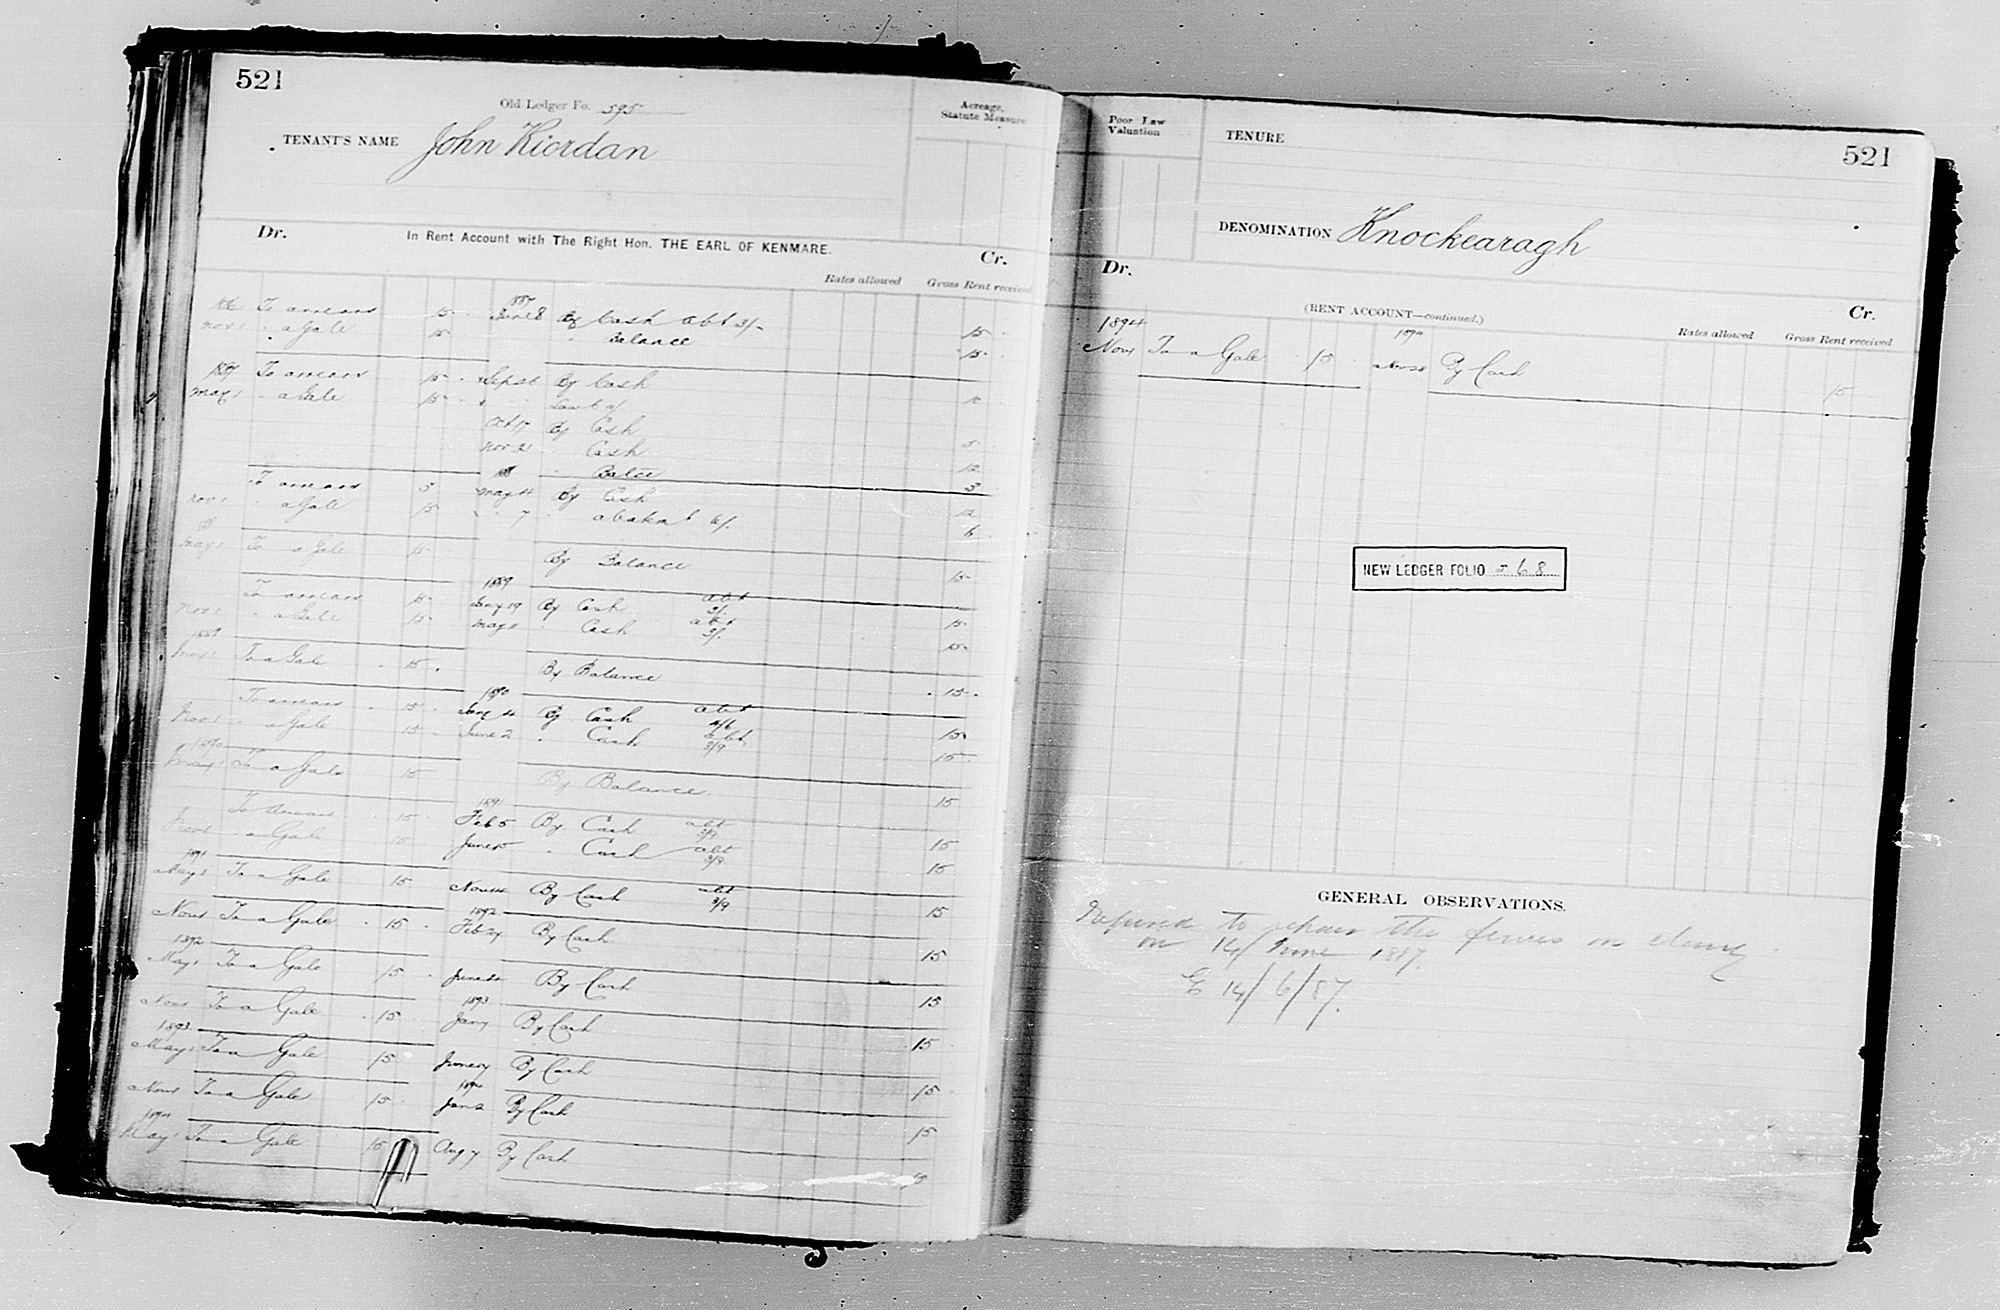 521
Old Ledger Fo. 595
TENANT'S NAME John Riordan
Acreage, Statute Measure
Dr. In Rent Account with The Right Hon. THE EARL OF KENMARE. Cr.
Rates allowed Gross Rent received
1887
To arrears 15 June 8 By Cash abt 3/- 15
Nov 1 " a Gale 15 " Balance 15
1887 To arrears 15 Sept By Cash 10
May 1 " a Gale 15
Oct 17 By Cash 5
Nov 21 Cash 12
" Balce 3
To arrears 3 May 4 By Cash 12
Nov 1 " a Gale 15 " 7 " 6/. 6
May 1 To a Gale 15 By Balance 15
1889
To arrears 15 Jany 19 By Cash abt 3/. 15
Nov 1 " a Gale 15 May " Cash abt 3/. 15
1889
May 1 To a Gale 15 By Balance 15
1890
To arrears 15 Jany 4 By Cash abt 4/6 15
Nov 1 " a Gale 15 June 2 " Cash abt 3/9 15
1890
May 1 To a Gale 15 By Balance 15
1891
To arrears 15 Feb 5 By Cash abt 3/9 15
Nov 1 " a Gale 15 June 15 " Cash abt 3/9 15
1891
May 1 To a Gale 15 Nov 14 By Cash abt 3/9 15
1892
Nov 1 To a Gale 15 Feb 24 By Cash 15
1892
May 1 To a Gale 15 June By Cash 15
1893
Nov 1 To a Gale 15 Jany By Cash 15
1893
May 1 To a Gale 15 June By Cash 15
1894
Nov 1 To a Gale 15 Jan 2 By Cash 15
1894
May 1 To a Gale 15 Aug 7 By Cash 15
Poor Law Valuation
TENURE
521
DENOMINATION Knockearagh
Dr. (RENT ACCOUNT—continued.) Cr.
Rates allowed Gross Rent received
1894 1894
Nov 1 To a Gale 15 Nov 28 By Cash 15
NEW LEDGER FOLIO 568
GENERAL OBSERVATIONS.
Refused to repair the fences on
on 14/ June 1887.
E 14/6/87.